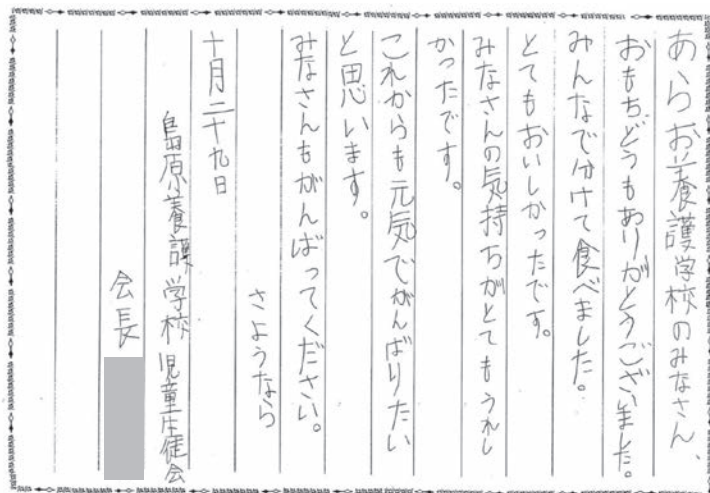 あらお養護学校のみなさん、
おもちどうもありがとうございました。
みんなで分けて食べました。
とてもおいしかったです。
みなさんの気持ちがとてもうれし
かったです。
これからも元気でがんばりたい
と思います。
みなさんもがんばってください。
さようなら
十月二十九日
島原養護学校児童生徒会
会長